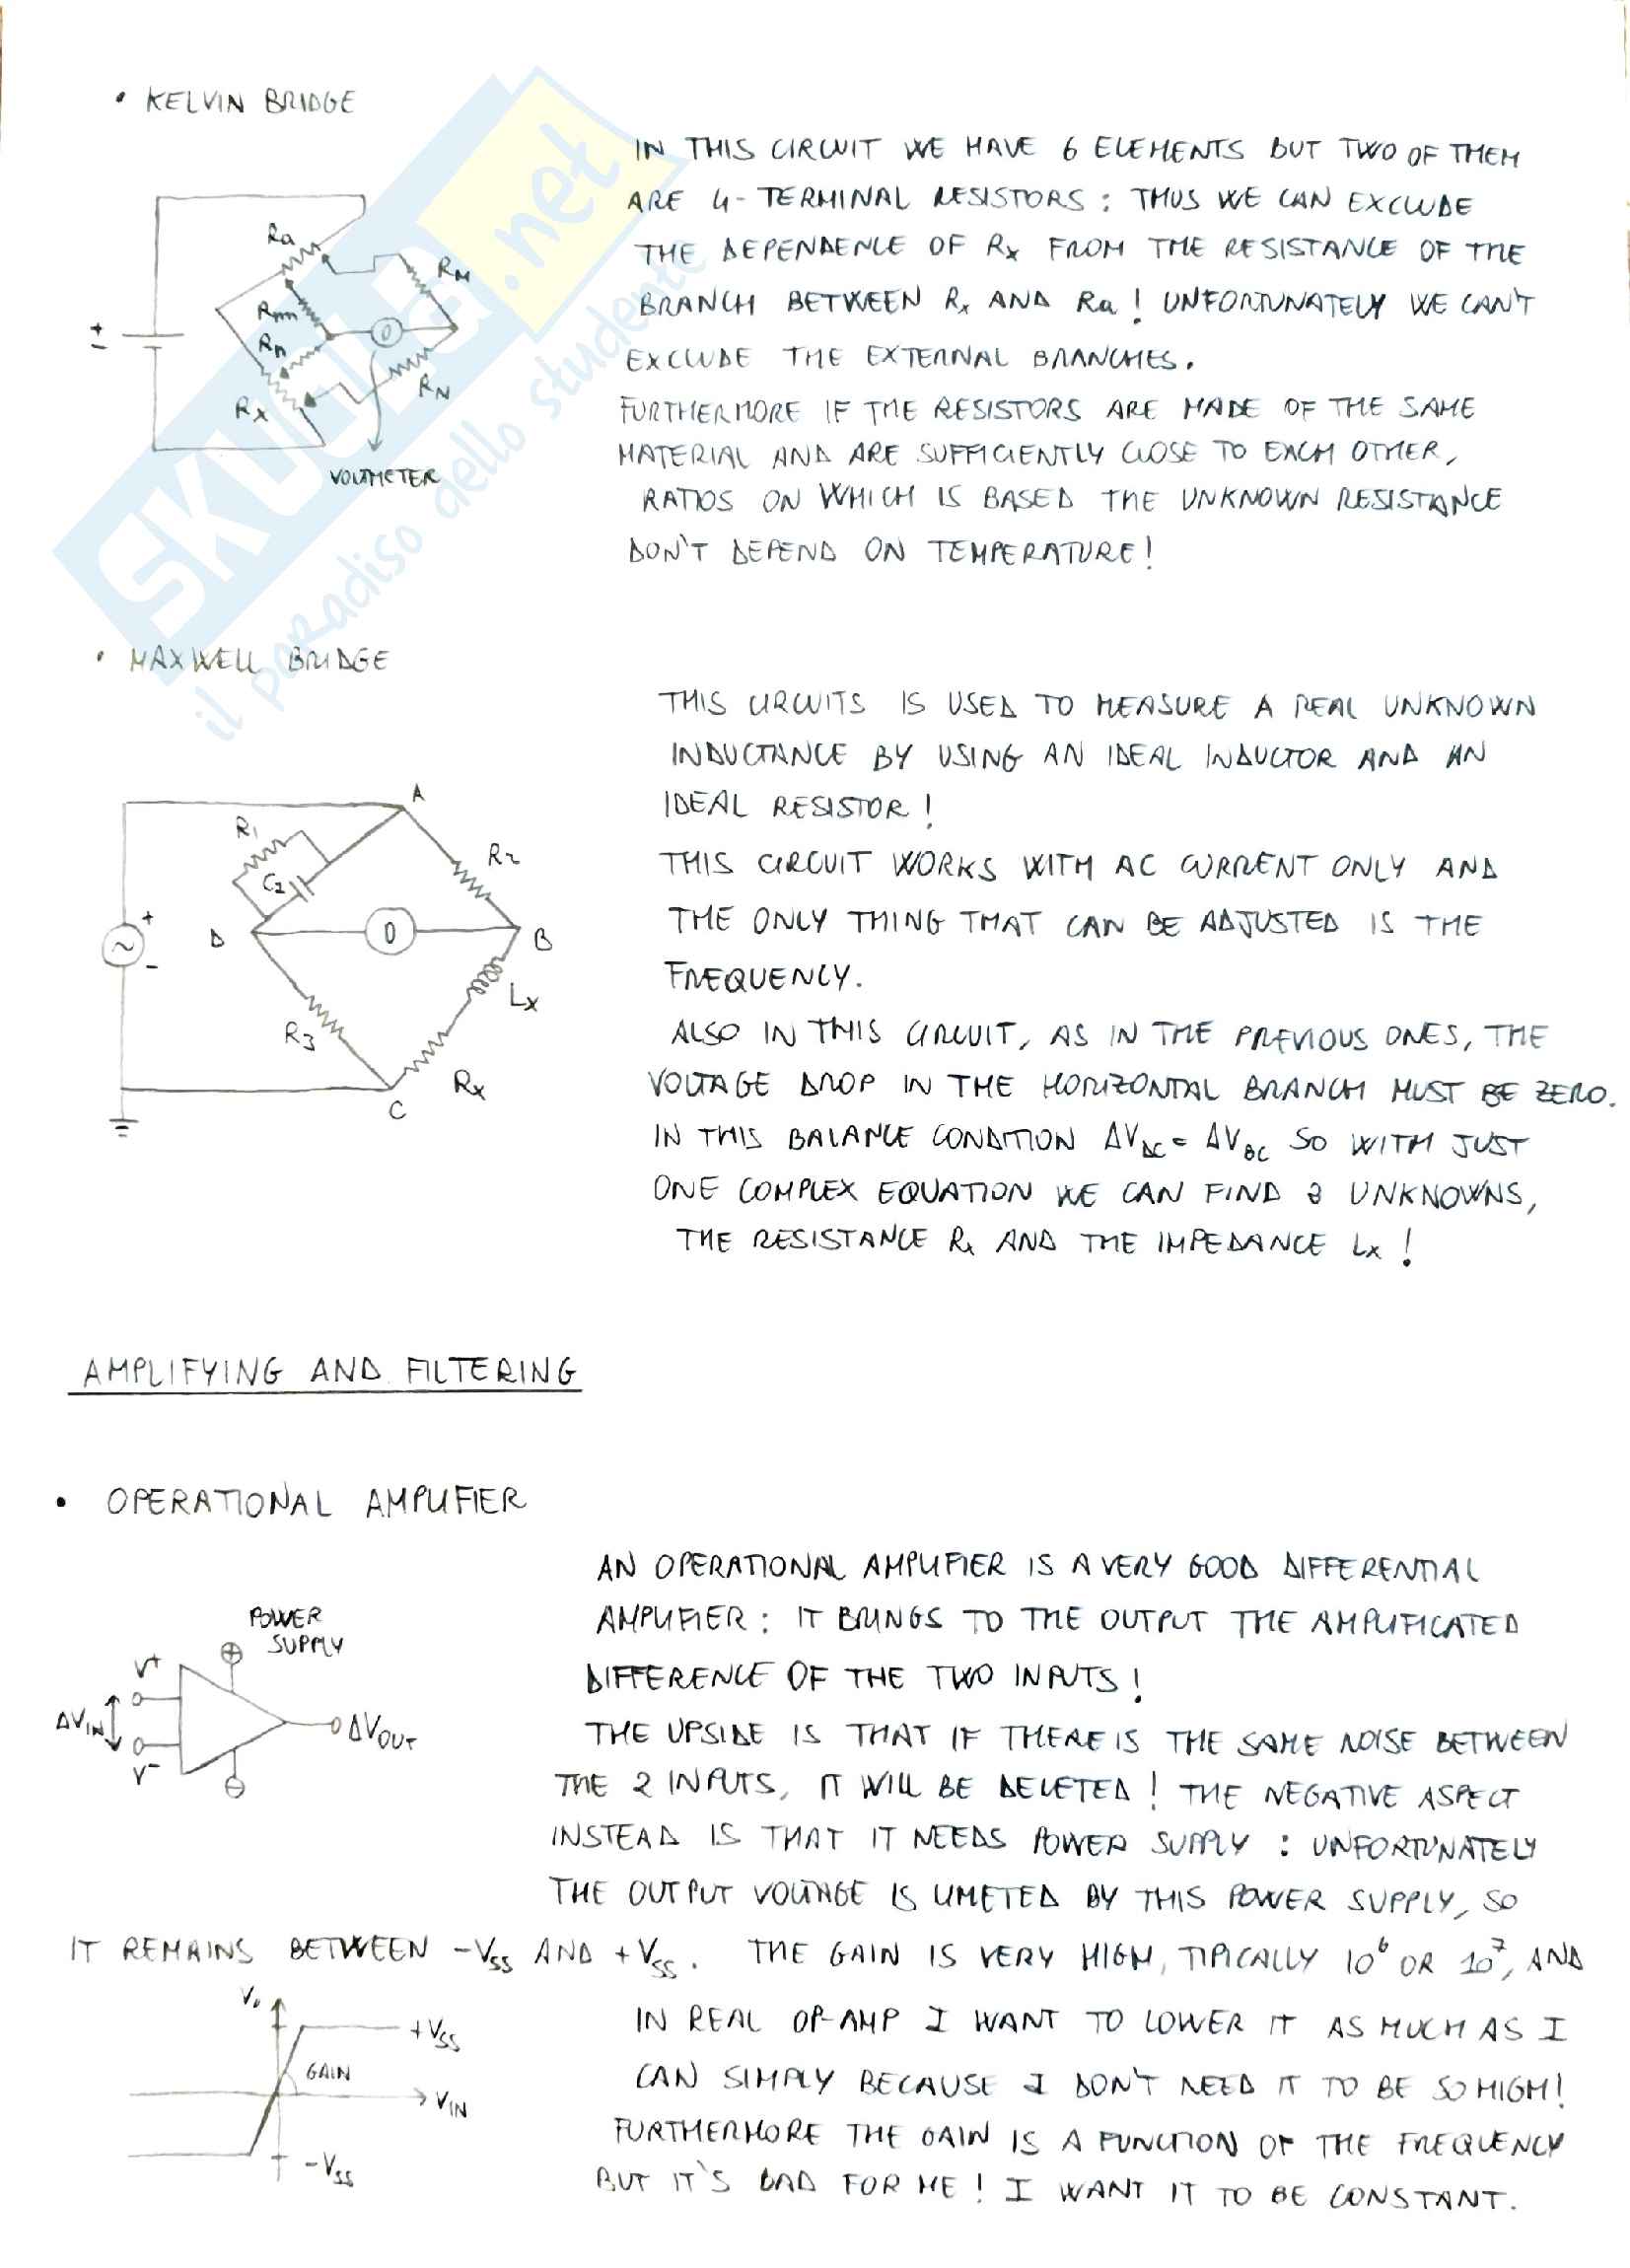 • KELVIN BRIDGE
IN THIS CIRCUIT WE HAVE 6 ELEMENTS BUT TWO OF THEM
ARE 4-TERMINAL RESISTORS: THUS WE CAN EXCLUDE
THE DEPENDENCE OF Rx FROM THE RESISTANCE OF THE
BRANCH BETWEEN Rx AND Ra! UNFORTUNATELY WE CAN'T
EXCLUDE THE EXTERNAL BRANCHES.
FURTHERMORE IF THE RESISTORS ARE MADE OF THE SAME
MATERIAL AND ARE SUFFICIENTLY CLOSE TO EACH OTHER,
RATIOS ON WHICH IS BASED THE UNKNOWN RESISTANCE
DON'T DEPEND ON TEMPERATURE!
Ra
RM
Rm
Rn
RN
Rx
+
-
VOLTMETER
SKUOLA.net
il paradiso dello studente
• MAXWELL BRIDGE
THIS CIRCUITS IS USED TO MEASURE A REAL UNKNOWN
INDUCTANCE BY USING AN IDEAL INDUCTOR AND AN
IDEAL RESISTOR!
THIS CIRCUIT WORKS WITH AC CURRENT ONLY AND
THE ONLY THING THAT CAN BE ADJUSTED IS THE
FREQUENCY.
ALSO IN THIS CIRCUIT, AS IN THE PREVIOUS ONES, THE
VOLTAGE DROP IN THE HORIZONTAL BRANCH MUST BE ZERO.
IN THIS BALANCE CONDITION ΔVDC = ΔVBC SO WITH JUST
ONE COMPLEX EQUATION WE CAN FIND 2 UNKNOWNS,
THE RESISTANCE Rx AND THE IMPEDANCE Lx!
A
R1
R2
C2
+
~
-
D
0
B
Lx
R3
Rx
C
AMPLIFYING AND FILTERING
• OPERATIONAL AMPLIFIER
AN OPERATIONAL AMPLIFIER IS A VERY GOOD DIFFERENTIAL
AMPLIFIER: IT BRINGS TO THE OUTPUT THE AMPLIFICATED
DIFFERENCE OF THE TWO INPUTS!
THE UPSIDE IS THAT IF THERE IS THE SAME NOISE BETWEEN
THE 2 INPUTS, IT WILL BE DELETED! THE NEGATIVE ASPECT
INSTEAD IS THAT IT NEEDS POWER SUPPLY: UNFORTUNATELY
THE OUTPUT VOLTAGE IS LIMETED BY THIS POWER SUPPLY, SO
IT REMAINS BETWEEN -VSS AND +VSS. THE GAIN IS VERY HIGH, TIPICALLY 10⁶ OR 10⁷, AND
IN REAL OP-AMP I WANT TO LOWER IT AS MUCH AS I
CAN SIMPLY BECAUSE I DON'T NEED IT TO BE SO HIGH!
FURTHERMORE THE GAIN IS A FUNCTION OF THE FREQUENCY
BUT IT'S BAD FOR ME! I WANT IT TO BE CONSTANT.
POWER
SUPPLY
V+
ΔVIN
V-
ΔVOUT
+VSS
GAIN
VIN
-VSS